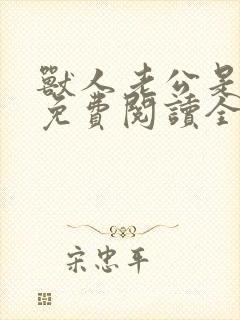 獸人老公是
免費閱讀全
宋忠平